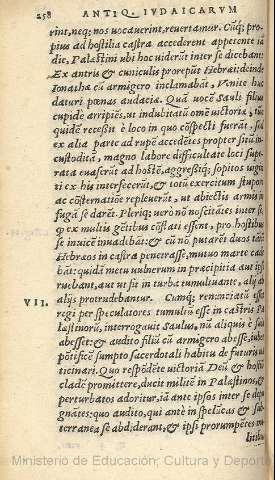 258 ANTIQ. IVDAICARVM
rint, neq; nos uocauerint, reuertamur. Cũq; pro-
pius ad hostilia castra accederent appetente iã
die, Palæstini ubi hoc uiderũt inter se dicebant:
Ex antris & cuniculis prorepũt Hebræi: deinde
Ionathã cũ armigero inclamabãt, Venite huc
daturi pœnas audaciæ. Quã uocẽ Sauli filius
cupidè arripiẽs, ut indubitatũ omẽ uictoriæ, tũ
quidẽ recessit è loco in quo cõspecti fuerãt, sed
ex alia parte ad rupẽ accedẽtes propter sitũ in-
custoditã, magno labore difficultate loci supe-
rata euaserũt ad hostẽ, aggressiq́; sopitos uigin
ti ex his interfecerũt, & totũ exercitum stupore
ac cõsternatiõe repleuerũt, ut abiectis armis in
fugã se darẽt. Pleriq; uerò nõ noscitãtes inter se,
q ex multis gẽtibus cõflati essent, pro hostibus
se inuicẽ inuadebãt: & cũ nõ putarẽt duos tãtũ
Hebræos in castra penetrasse, mutuo marte cade
bãt: quidã metu uulnerum in præcipitia aut ipsi
ruebant, aut ut fit in turba tumultuante, alij ab
alijs protrudebantur.
VII. Cumq́; renunciatũ esset
regi per speculatores tumulũ esse in castris Pa
læstinorũ, interrogauit Saulus, nũ aliquis è suis
abesset: & audito filiũ cũ armigero abesse, iubet
põtificẽ sumpto sacerdotali habitu de futuris ua
ticinari. Quo respõdẽte uictoriã Deũ & hostiũ
cladẽ promittere, ducit militẽ in Palæstinos, et
perturbatos adoritur, iã ante ipsos inter se depu
gnãtes: quo audito, qui antè in speluncas & sub-
terranea se abdiderant, & ipsi prorumpẽtes mi
litibus
Ministerio de Educación, Cultura y Deporte